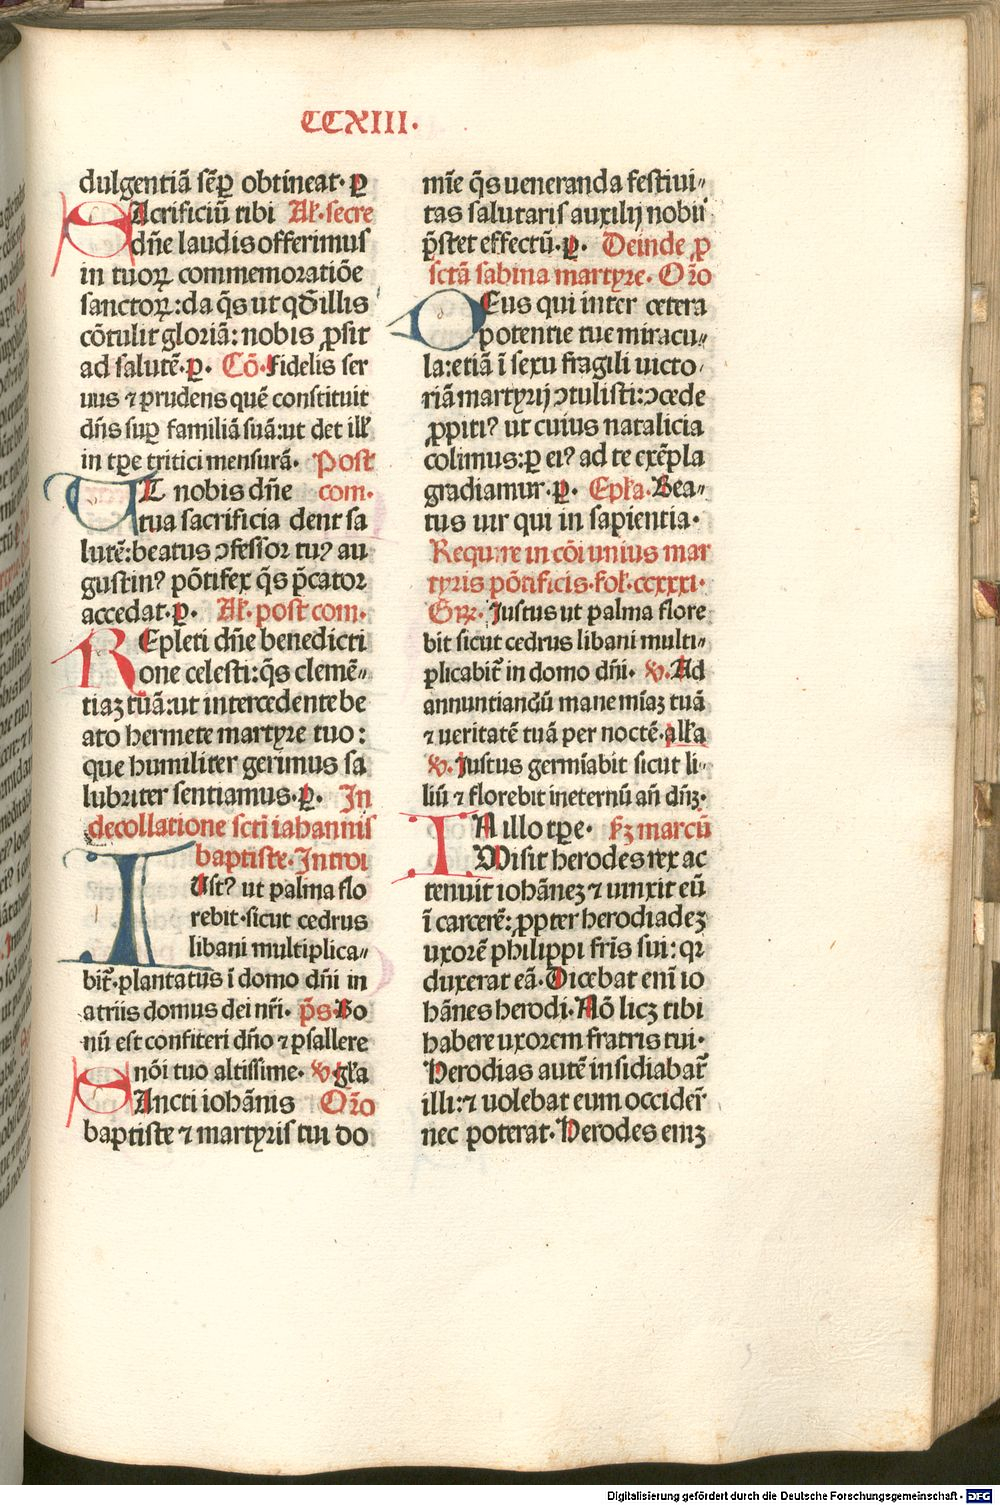 CCXIII.
dulgentiā sēꝑ obtineat. ꝑ
SAcrificiū tibi Al'. secre
dn̄e laudis offerimus
in tuoꝝ commemoratiōe
sanctoꝝ: da q̄s ut qđ illis
cōtulit gloriā: nobis ꝓsit
ad salutē. ꝑ. Cō. Fidelis ser
uus ⁊ prudens quē constituit
dn̄s suꝑ familiā suā: ut det ill'
in tꝑe tritici mensurā. Post
UT nobis dn̄e com.
tua sacrificia dent sa
lutē: beatus ↄfessor tuꝰ au
gustinꝰ pōtifex q̄s p̄cator
accedat. ꝑ. Al'. post com.
REpleti dn̄e benedicti
one celesti: q̄s clemē„
tiaꝫ tuā: ut intercedente be
ato hermete martyre tuo:
que humiliter gerimus sa
lubriter sentiamus. ꝑ. In
decollatione scti iahannis
baptiste. Introi
IUstꝰ ut palma flo
rebit. sicut cedrus
libani multiplica„
bit̄. plantatus ī domo dn̄i in
atriis domus dei nr̄i. p̄s. Bo
nū est confiteri dn̄o ⁊ psallere
nōi tuo altissime. v̄ gl'a
SAncti iohānis Oŕo
baptiste ⁊ martyris tui do
mīe q̄s ueneranda festiui„
tas salutaris auxilij nobis
p̄stet effectū. ꝑ. Deinde ꝓ
sctā sabina martyre. Oŕo
DEus qui inter cetera
potentie tue miracu„
la: etiā ī sexu fragili uicto„
riā martyrij ↄtulisti: ↄcede
ꝓpitiꝰ ut cuius natalicia
colimus: ꝑ eiꝰ ad te exēpla
gradiamur. ꝑ. Epl'a. Bea„
tus uir qui in sapientia.
Require in cōi unius mar
tyris pōtificis. fol'. ccxxxi.
Gꝝ. Justus ut palma flore
bit sicut cedrus libani multi„
plicabit̄ in domo dn̄i. v̄. Ad
annuntiandū mane mīaꝫ tuā
⁊ ueritatē tuā per noctē. all'a
v̄. Justus germīabit sicut li„
liū ⁊ florebit ineternū an̄ dn̄ꝫ.
IN illo tꝑe. sꝫ marcū
Misit herodes rex ac
tenuit iohāneꝫ ⁊ uinxit eū
ī carcerē: ꝓpter herodiadeꝫ
uxorē philippi fr̄is sui: qr
duxerat eā. Dicebat enī io
hānes herodi. Nō licꝫ tibi
habere uxorem fratris tui.
Herodias autē insidiabat̄
illi: ⁊ uolebat eum occider̄
nec poterat. Herodes eniꝫ
Digitalisierung gefördert durch die Deutsche Forschungsgemeinschaft - DFG